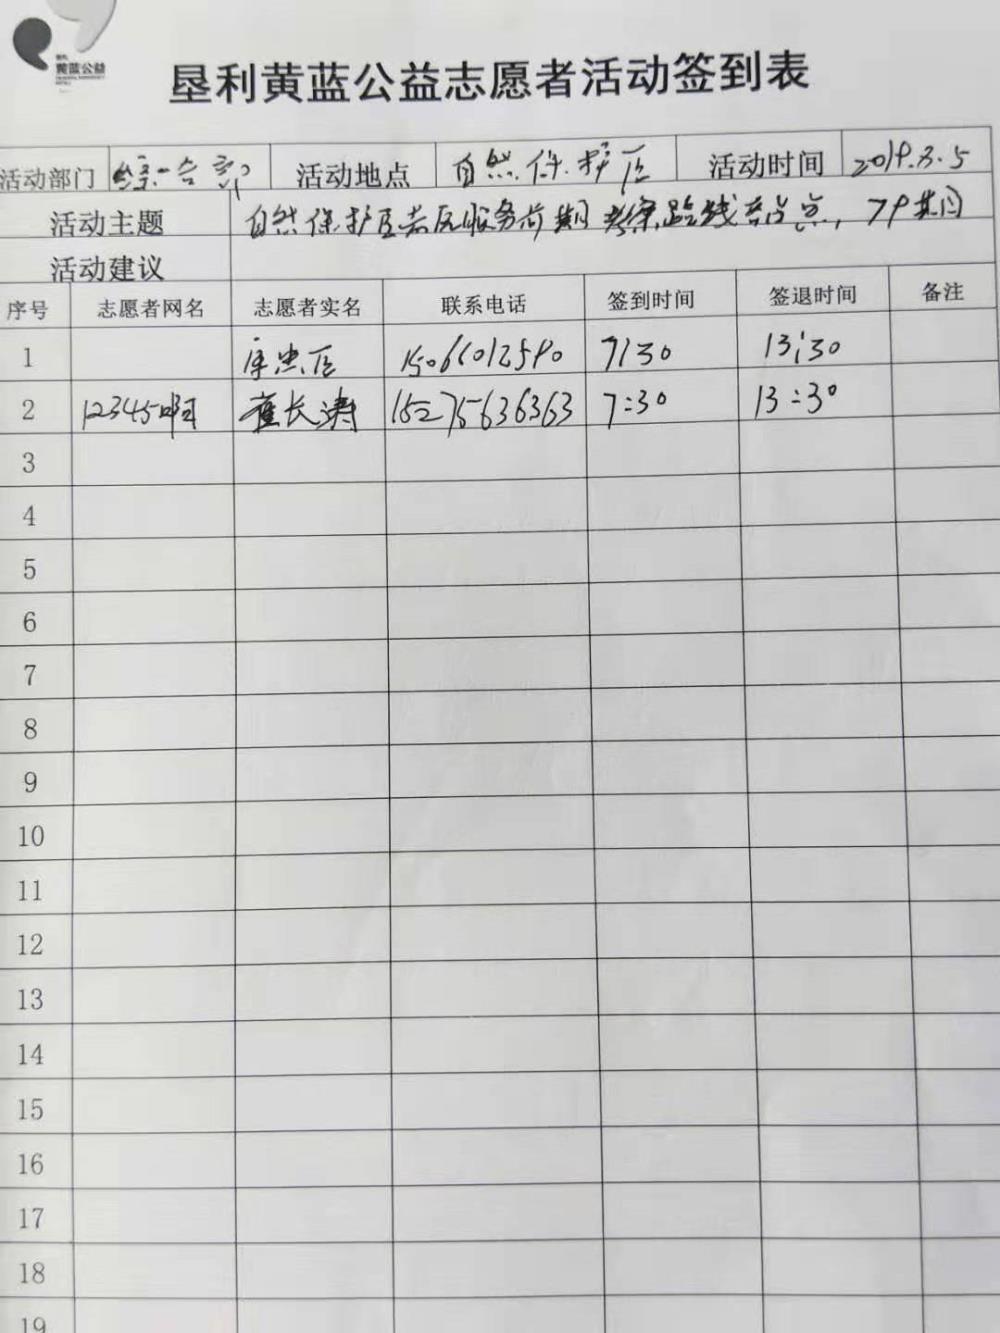 黄蓝公益
垦利黄蓝公益志愿者活动签到表
活动部门 综合部 活动地点 自然保护区 活动时间 2019.3.5
活动主题 自然保护区志愿服务前期考察路线 79期
活动建议
序号 志愿者网名 志愿者实名 联系电话 签到时间 签退时间 备注
1 7:30 13:30
2 12345啊 崔长涛 15275636363 7:30 13:30
3
4
5
6
7
8
9
10
11
12
13
14
15
16
17
18
19